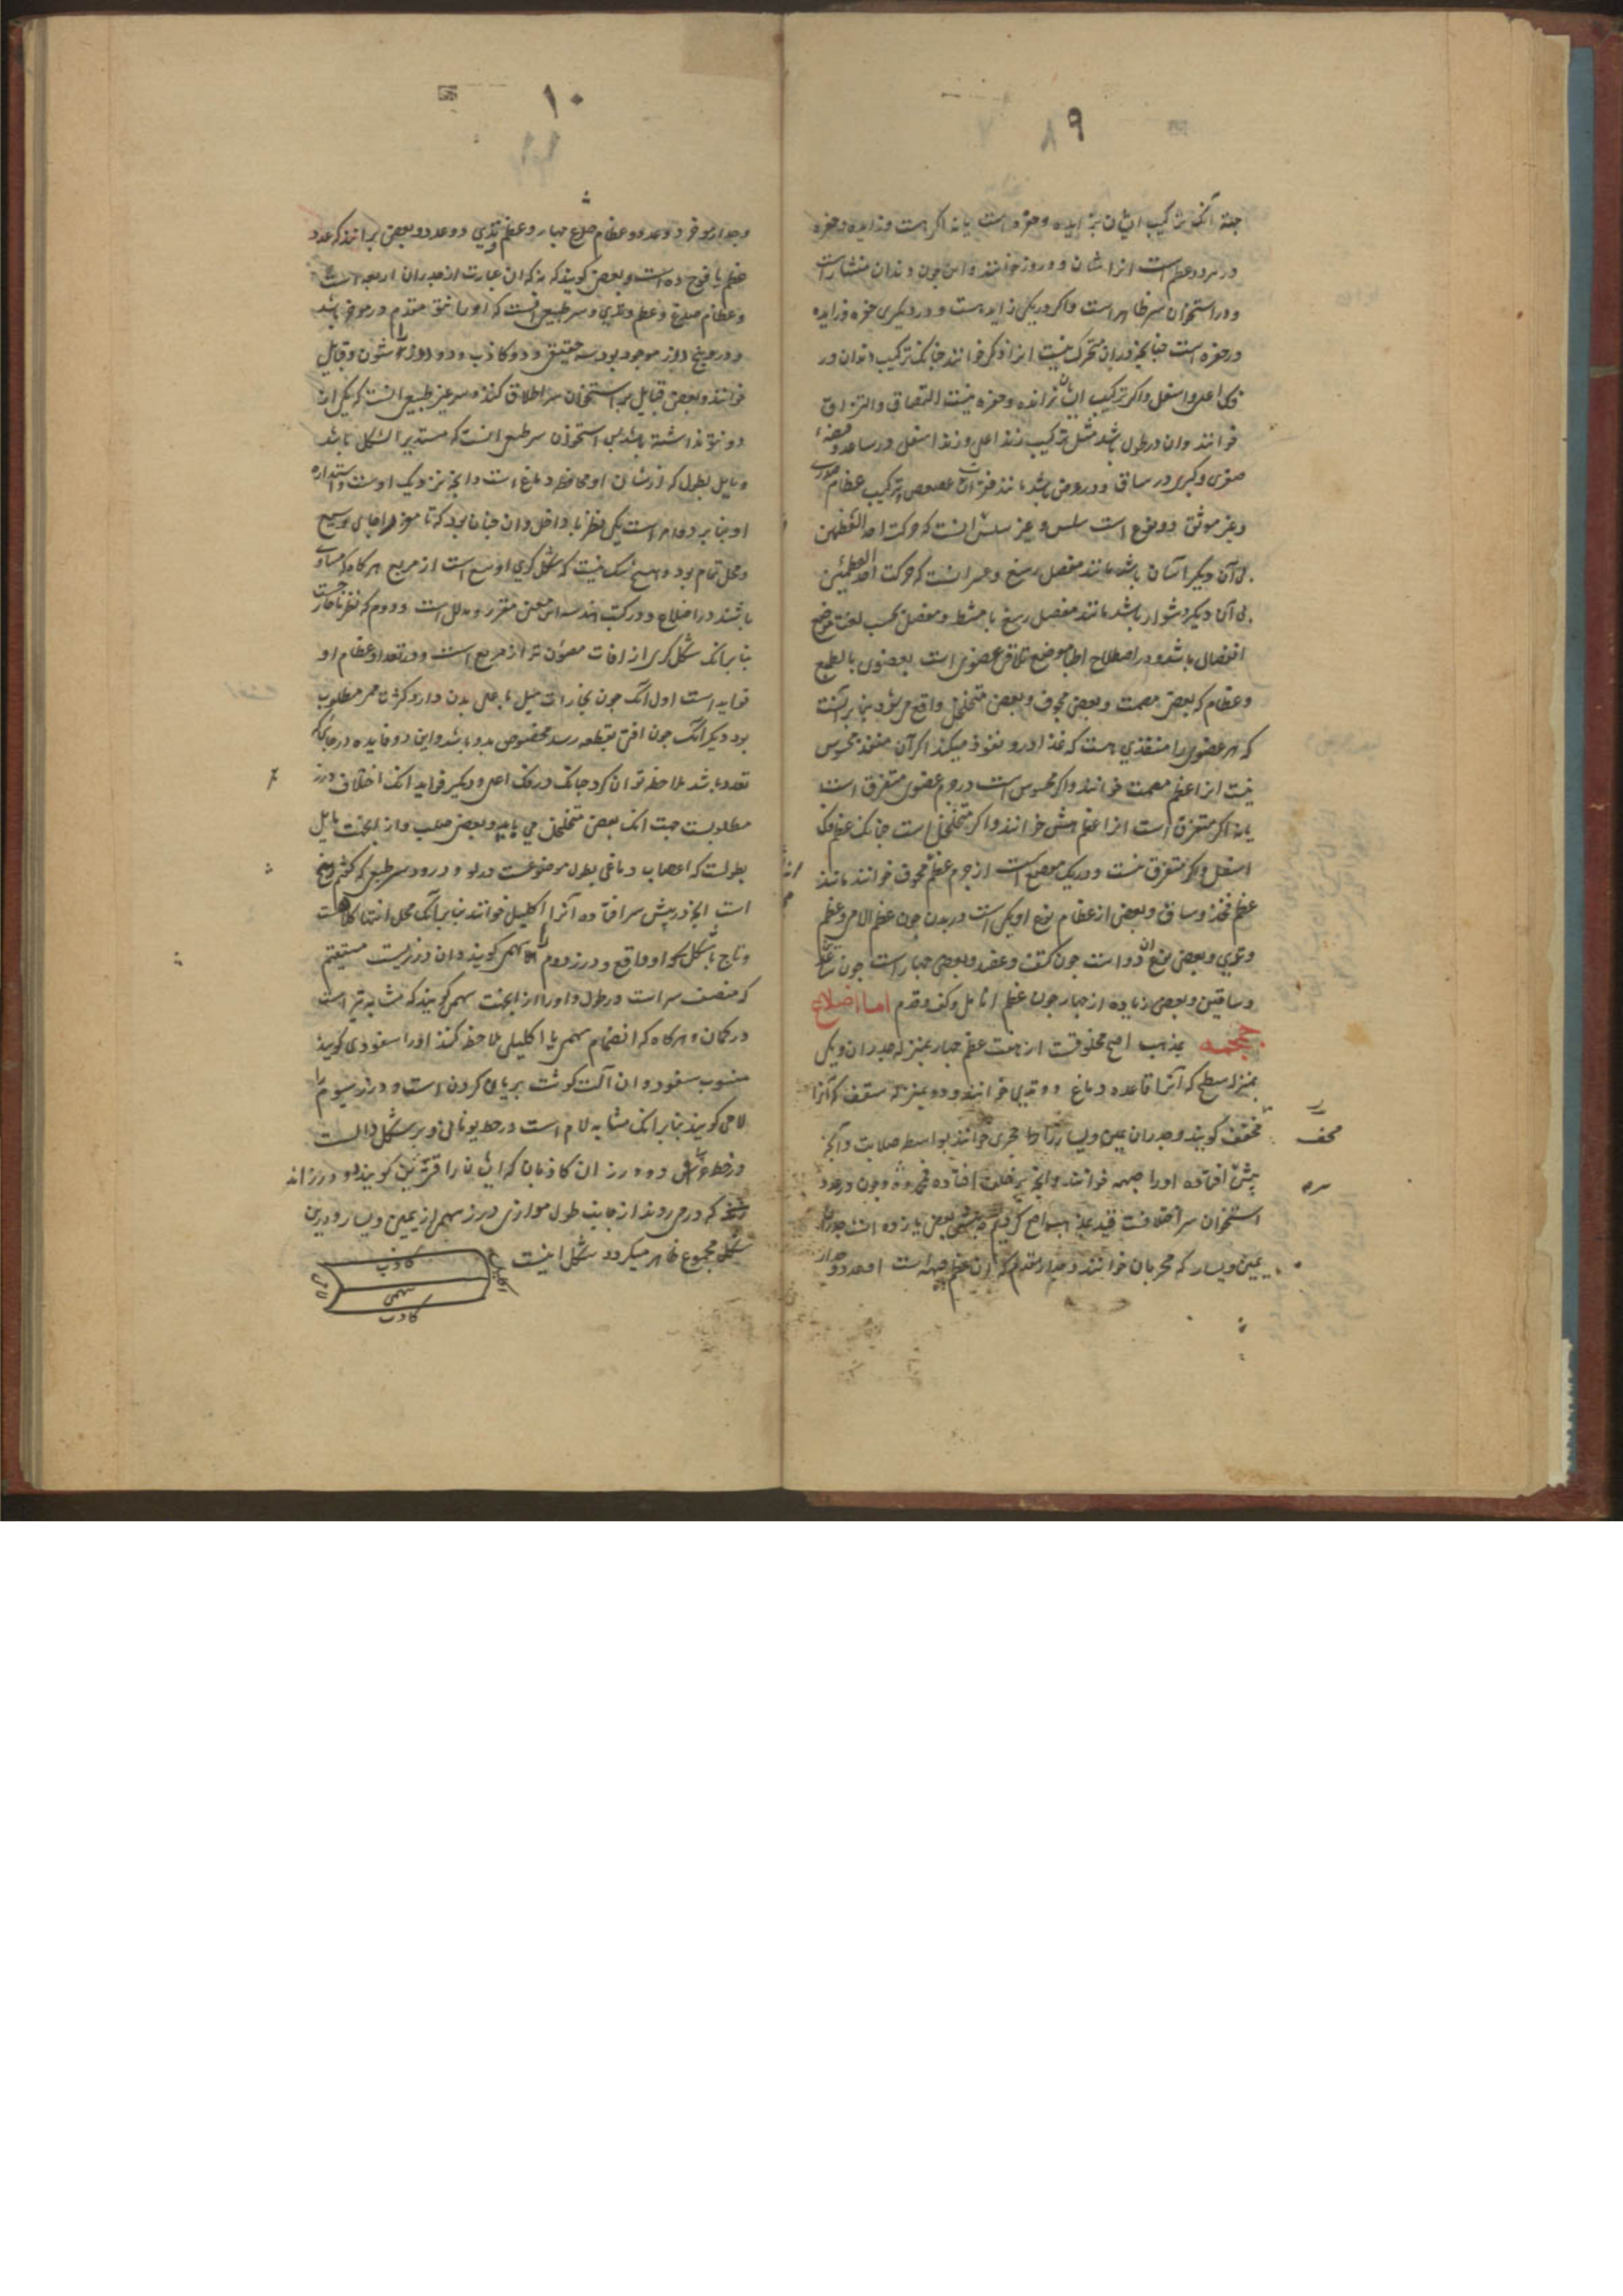 ۸۹
جهة آنکه ترکیب ایشان بزایده و حفره است یا نه اکر هست و زایده و حفره
در هر دو عظم است انرا شان و دروز خوانند و این چون دندان منشار است
و در استخوان سر ظاهر است و اکر در یکی زایده است و در دیکری حفره و زایده
در حفره است چنانچه در ان متحرک نیست انرا رکز خوانند چنانکه ترکیب دندان در
فک اعلی و اسفل و اکر ترکیب ایشان بزایده و حفره نیست التصاق و التزاق
خوانند و ان در طول باشد مثل ترکیب زند اعلی و زند اسفل در ساعد و قصبه
صغری و کبری در ساق و در عرض باشد مانند فقرات عصعص ترکیب عظام
و غیر موثق دو نوع است سلس و غیر سلس سلس انست که حرکت احد العظمین
بی آن دیکر آسان باشد مانند مفصل رسغ و عسر انست که حرکت احد العظمین
بی آن دیکر دشوار باشد مانند مفصل رسغ با مشط و مفصل بحسب لغت موضع
انفصال باشد و در اصطلاح اطبا موضع تلاقی عضوی است بعضوی بالطبع
و عظام که بعضی مصمت و بعضی مجوف و بعضی متخلخل واقع می شود بنا بر آنست
که هر عضوی را منفذی هست که غذا درو نفوذ میکند اکر آن منفذ محسوس
نیست انرا عظم مصمت خوانند و اکر محسوس است در جرم عضوی متفرق است
یا نه اکر متفرق است انرا عظم هش خوانند و اکر متخلخل است چنانکه عظم فک
اسفل و اکر متفرق نیست و در یک موضع است از جرم عظم مجوف خوانند مانند
عظم فخذ و ساق و بعضی از عظام نوع او یکی است در بدن چون عظم لامی و عظم
وتدی و بعضی نوع ان دو است چون کتف و عضد و بعضی چهار است چون
و ساقین و بعضی زیاده از چهار چون عظم انامل و کف و قدم اما اضلاع
جمجمه بمذهب اصح مخلوقست از هفت عظم چهار بمنزله جدران و یکی
بمنزله سطح که آنرا قاعده دماغ و وتدی خوانند و دو بمنزله سقف که آنرا
قحف کویند و جدران یمین و یسار را حجری خوانند بواسطه صلابت و آنچه
پیش افتاده اورا جبهه خوانند و آنچه بر خلف افتاده مؤخره و چون در عدد
استخوان سر اختلافست قید بمذهب اصح کردیم بعضی یازده است جدران
یمین و یسار که حجریان خوانند و جدار مقدم که ان عظم جبهه است
قحف
سره
۱۰
و جدار موخر دو عدد و عظام صدغ چهار و عظم وتدی دو عدد و بعضی برانند که عدد
عظم یافوخ ده است و بعضی کویند که نه که ان عبارت از جدران اربعه است
و عظام صدغ و عظم وتدی و سر طبیعی انست که اورا نتو مقدم و موخر باشد
و درو پنج درز موجود بود سه حقیقی و دو کاذب و دو درز را شئون و قبایل
خوانند و بعضی قبایل بر استخوان سر اطلاق کنند و سر غیر طبیعی انست که یکی ازان
دو نتو نداشته باشد پس استخوان سر طبیعی انست که مستدیر الشکل باشد
و مایل بطول که از شان او محافظه دماغ است و آنچه نزدیک اوست و استداره
او بنا بر دو امر است یکی نظر با داخل و ان چنان بود که تا موخر را جای وسیع
و محل تمام بود و هیچ شک نیست که شکل کری اوسع است از مربع هر کاه که مساوی
باشند در اضلاع و در کتب هندسه این معنی مقرر و مدلل است و دوم که نظر بخارج است
بنا بر انکه شکل کری از افات مصون تر از مربع است و در تعدد عظام او
فوایدست اول آنکه چون بخارات میل باعلی بدن دارد کثرت ممر مطلوب
بود دیکر آنکه چون افتی بقطعه رسد مخصوص بدو باشد و این دو فایده در جائی که
تعدد باشد ملاحظه توان کرد چنانکه در فک اعلی و دیکر فواید انکه اختلاف درز
مطلوبست جهت انکه بعضی متخلخل می باید و بعضی صلب و از اینجهت مایل
بطولست که اعصاب دماغی بطول موضوعست درو و دروز سر طبیعی که کفتیم پنج
است انچه در پیش سر افتاده آنرا اکلیلی خوانند بنا بر آنکه محل انتهاء کلاهست
و تاج بشکل او واقع و درز دوم را سهمی کویند و ان درزیست مستقیم
که منصف سر است در طول و اورا از اینجهت سهمی کویند که مشابه تیر است
در کمان و هر کاه که انضمام سهمی با اکلیلی ملاحظه کنند اورا سفودی کویند
منسوب بسفود و ان آلت کوشت بریان کردن است و درز سیوم را
لامی کویند بنا بر انکه مشابه لام است در خط یونانی و بر شکل دالست
در خط و دو درز ان کاذبان که ایشان را قشریین کویند و درز انه
اند که در می روند از جانب طول موازی درز سهمی از یمین و یسار و درین
شکل مجموع ظاهر میکردد شکل اینست
کاذب
اکلیلی
سهمی
لامی
کاذب